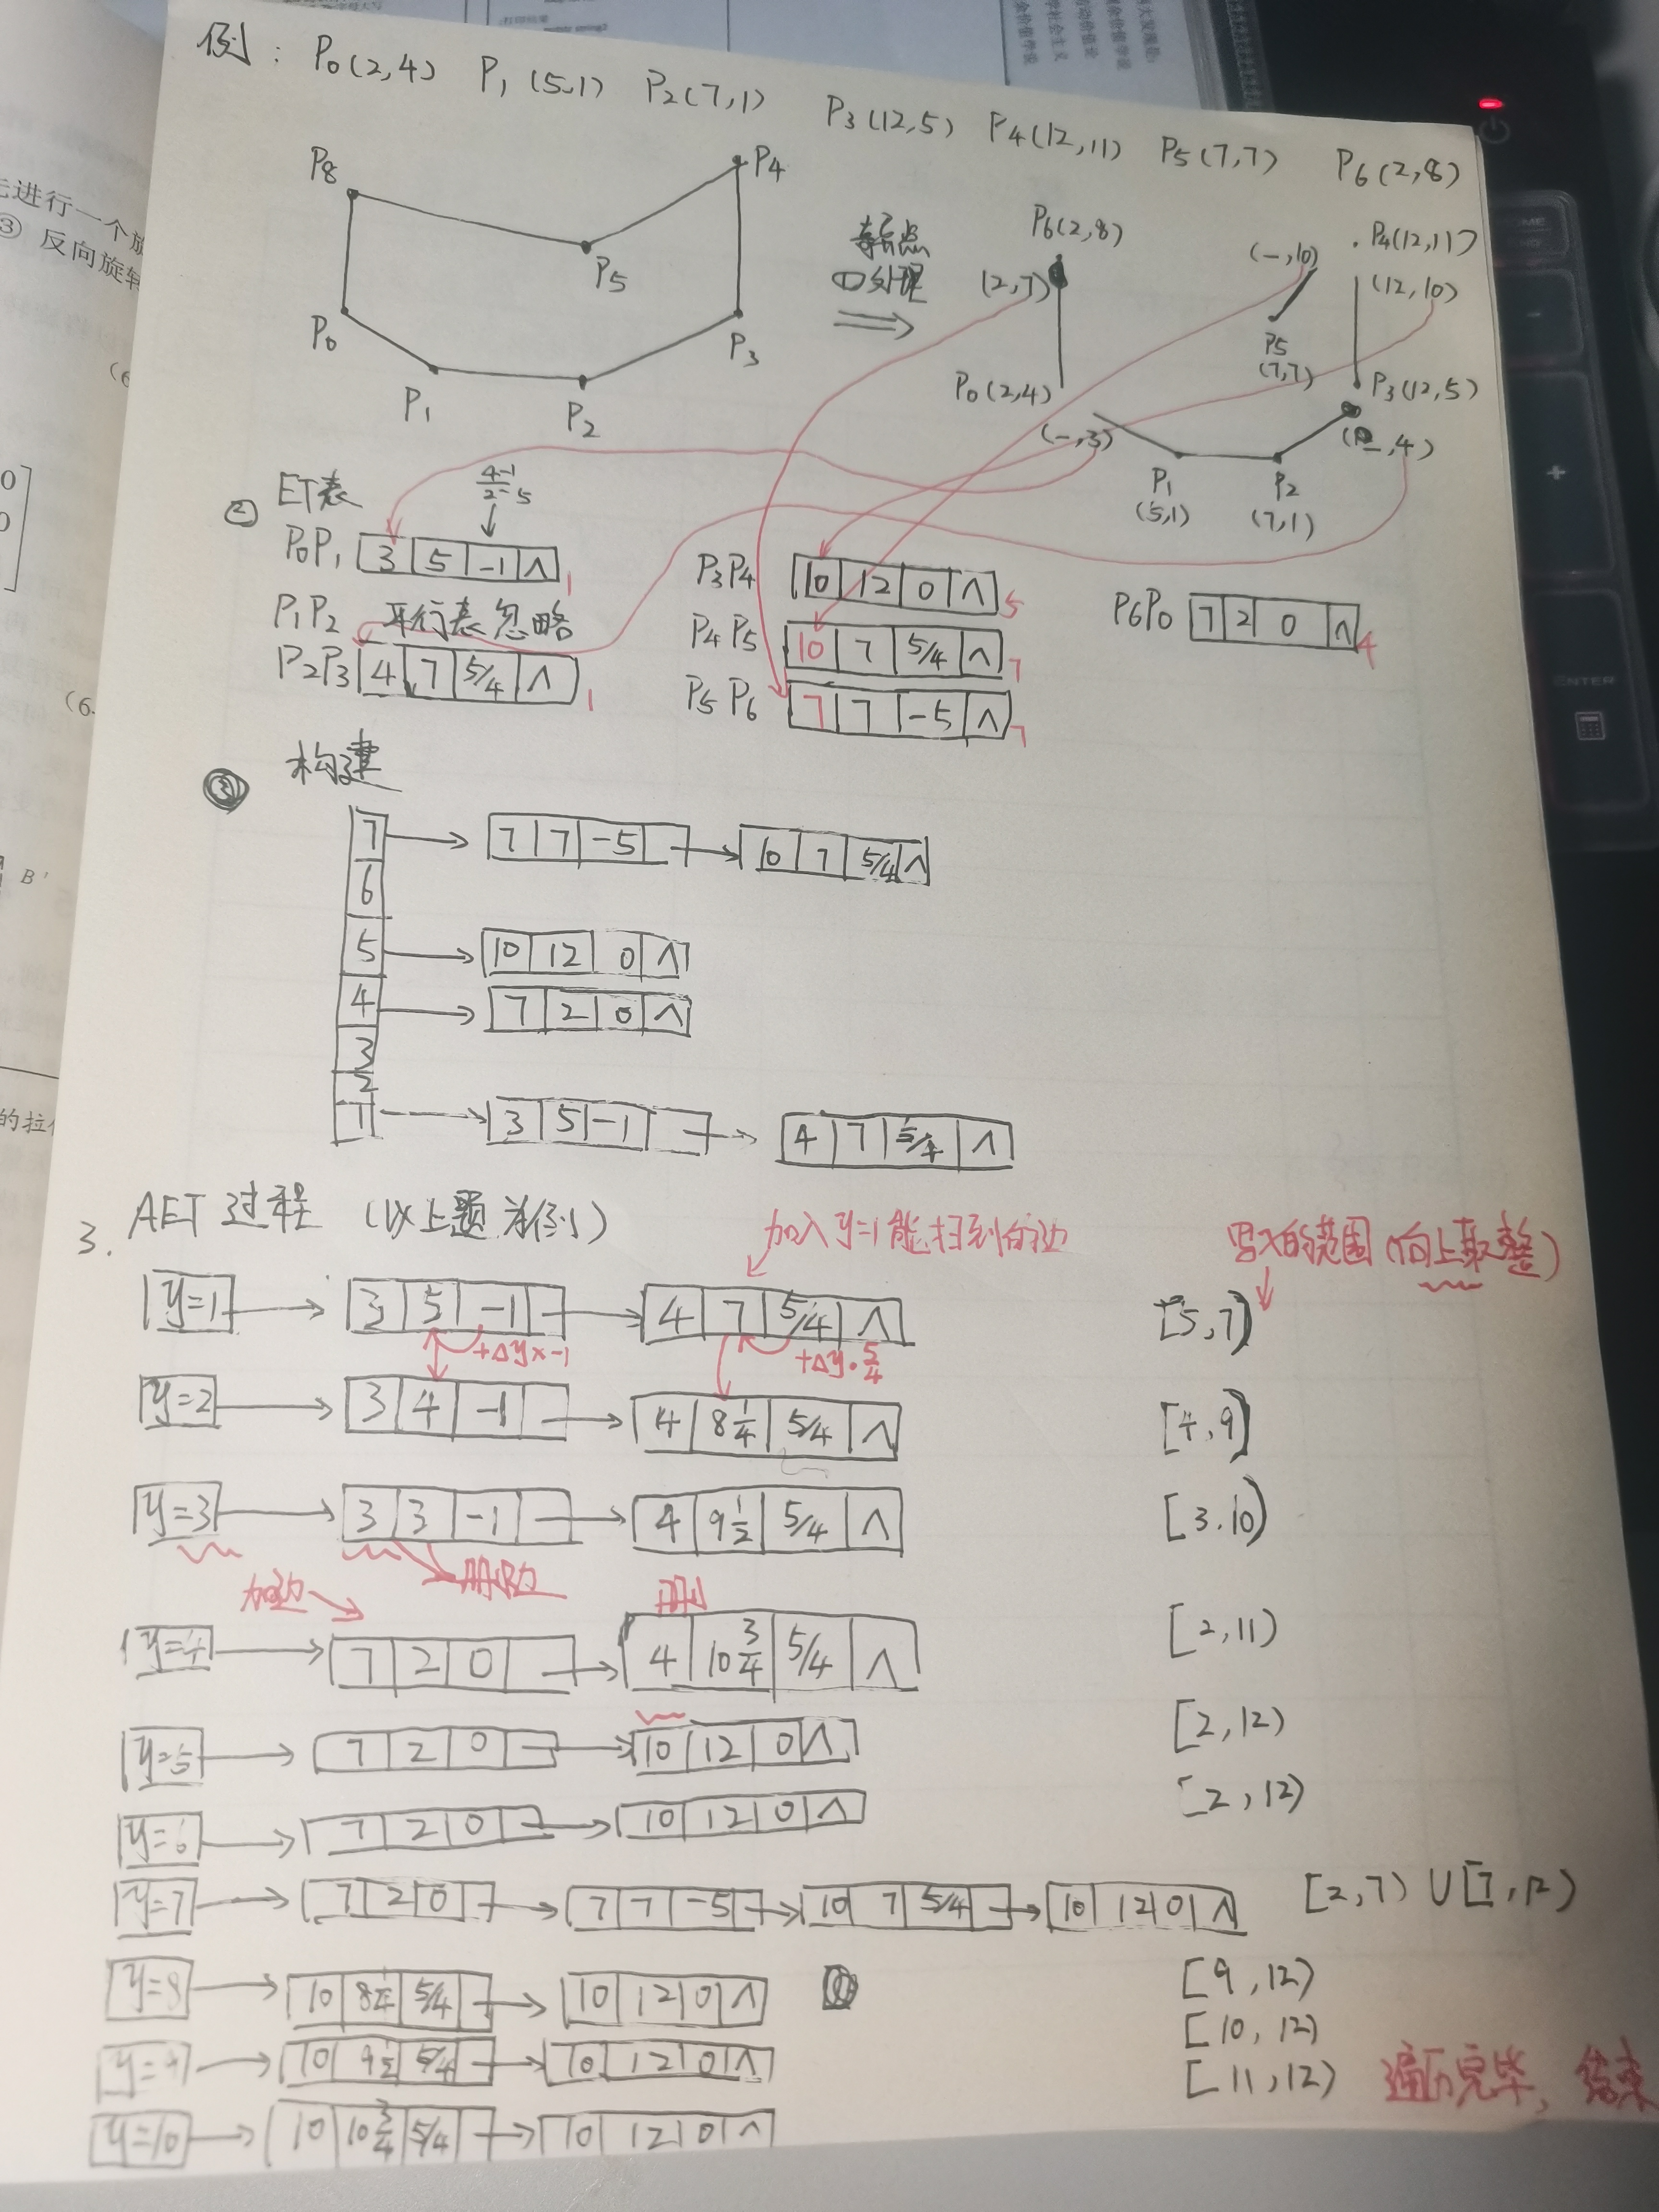 例: P₀(2,4) P₁(5,1) P₂(7,1) P₃(12,5) P₄(12,11) P₅(7,7) P₆(2,8)
P8
P5
P4
P0
P1
P2
P3
奇点
①处理
P6(2,8)
(2,7)
P0(2,4)
(-,10)
P5
(7,7)
P4(12,11)
(12,10)
P3(12,5)
(-,3)
P1
(5,1)
P2
(7,1)
(_,4)
② ET表
4-1
2-5
P0P1 3 5 -1 ∧ 1
P1P2 平行表忽略
P2P3 4 7 5/4 ∧ 1
P3P4 10 12 0 ∧ 5
P4P5 10 7 5/4 ∧ 7
P5P6 7 7 -5 ∧ 7
P6P0 7 2 0 ∧ 4
③ 构建
7 7 7 -5 10 7 5/4 ∧
6
5 10 12 0 ∧
4 7 2 0 ∧
3
2
1 3 5 -1 4 7 5/4 ∧
3. AET过程 (以上题为例)
加入y=1能扫到的边
写入的范围(向上取整)
y=1 3 5 -1 4 7 5/4 ∧ [5,7)
+Δy×-1 +Δy·5/4
y=2 3 4 -1 4 8¼ 5/4 ∧ [4,9)
y=3 3 3 -1 4 9½ 5/4 ∧ [3.10)
加边 删边 删
y=4 7 2 0 4 10¾ 5/4 ∧ [2,11)
y=5 7 2 0 10 12 0 ∧ [2,12)
y=6 7 2 0 10 12 0 ∧ [2,12)
y=7 7 2 0 7 7 -5 10 7 5/4 10 12 0 ∧ [2,7) U [7,12)
y=8 10 8¼ 5/4 10 12 0 ∧ [9,12)
y=9 10 9½ 5/4 10 12 0 ∧ [10,12)
y=10 10 10¾ 5/4 10 12 0 ∧ [11,12) 遍历完毕，结束
先进行一个旋
③ 反向旋转
(6
(6.
B'
的拉伸
ENTER